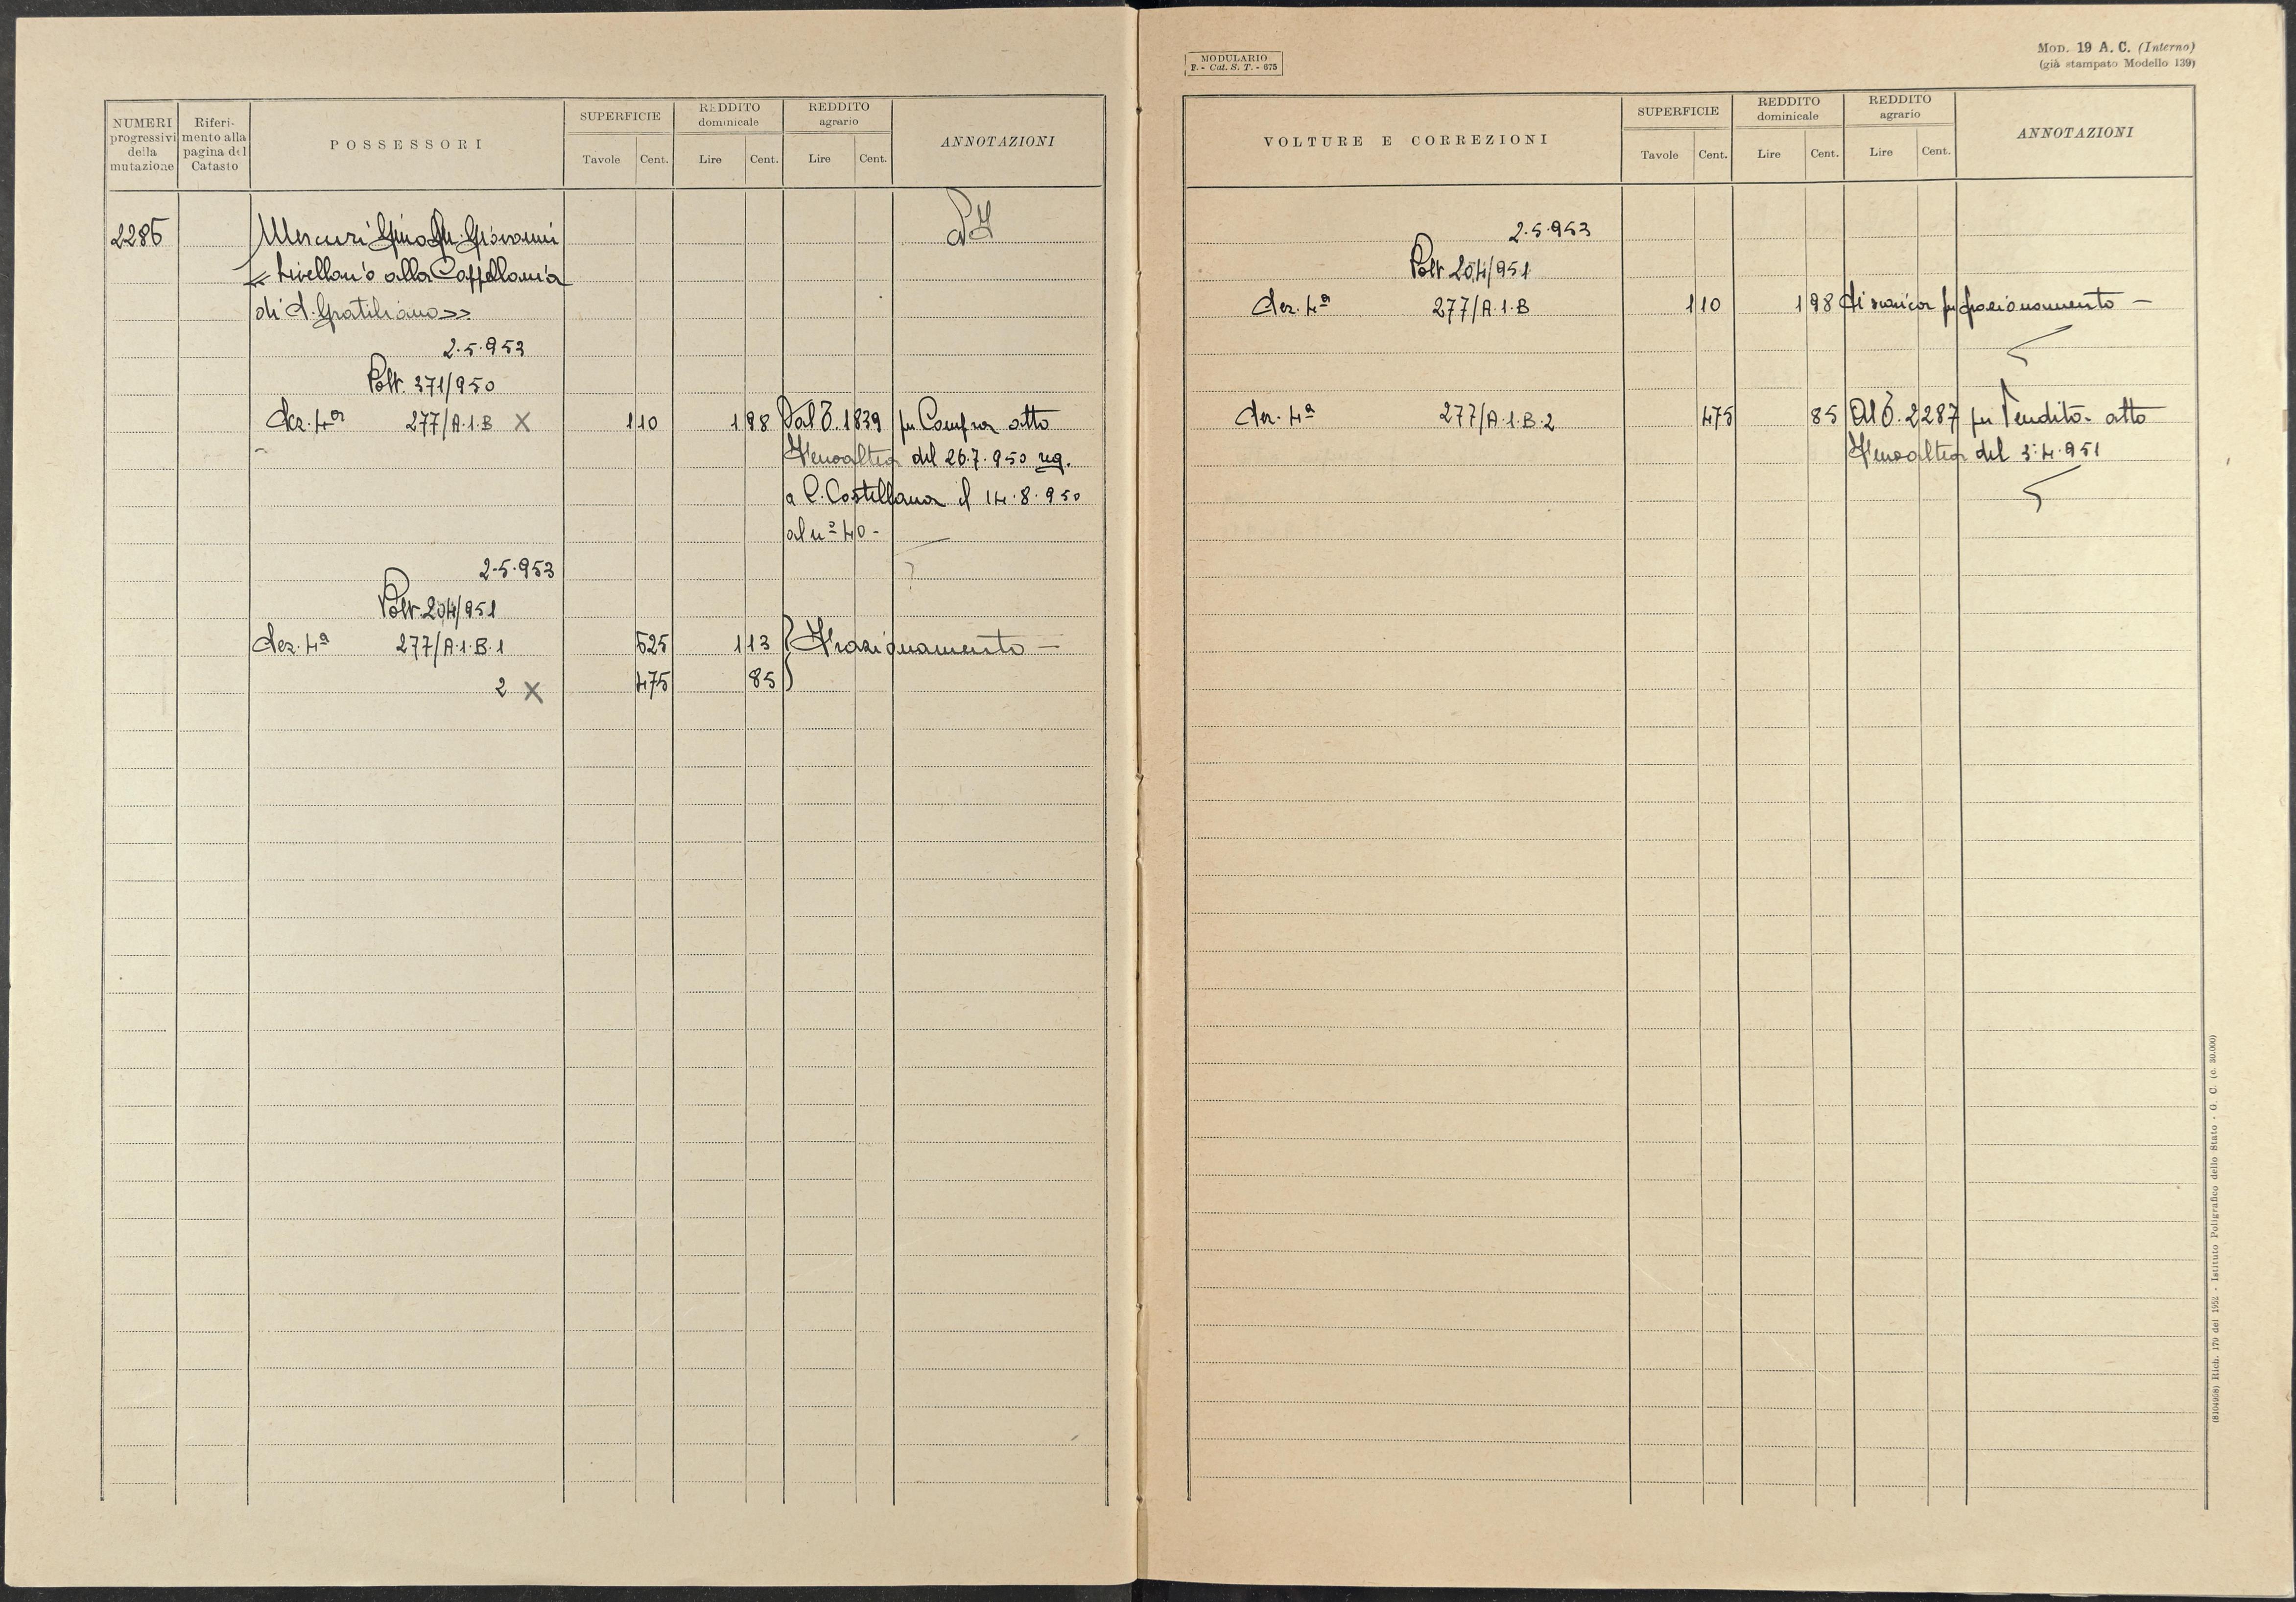 NUMERI progressivi della mutazione
Riferimento alla pagina del Catasto
POSSESSORI
SUPERFICIE
Tavole Cent.
REDDITO dominicale
Lire Cent.
REDDITO agrario
Lire Cent.
ANNOTAZIONI
2286
Mercuri Gino fu Giovanni
« livellario alla Cappellania
di S. Gratiliano »
2.5.953
Volt. 371/950
Sez. 4ª 277/A.1.B X 1 10 1 98 Dal C. 1839 per Compra atto
Fenoaltea del 26.7.950 reg.
a C. Castellana il 14.8.950
al nº 40 -
2.5.953
Volt. 204/951
Sez. 4ª 277/A.1.B.1 625 1 13 Frazionamento —
2 X 475 85
MODULARIO
F. - Cat. S. T. - 675
MOD. 19 A. C. (Interno)
(già stampato Modello 139)
VOLTURE E CORREZIONI
SUPERFICIE
Tavole Cent.
REDDITO dominicale
Lire Cent.
REDDITO agrario
Lire Cent.
ANNOTAZIONI
2.5.953
Volt. 204/951
Sez. 4ª 277/A.1.B 1 10 1 98 Si scarica per frazionamento —
Sez. 4ª 277/A.1.B.2 475 85 Al C. 2287 per Vendita atto
Fenoaltea del 3.4.951
(8104968) Rich. 179 del 1952 - Istituto Poligrafico dello Stato - G. C. (c. 30.000)